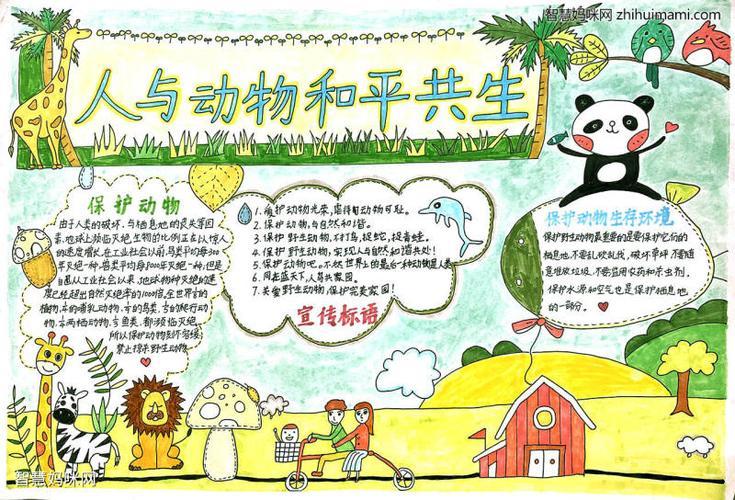 智慧妈咪网 zhihuimami.com
人与动物和平共生
保护动物
由于人类的破坏,与栖息地的丧失等因
素,地球上濒临灭绝生物的比例正在以惊人
的速度增长,在工业社会以前,鸟类平均每300
年灭绝一种,兽类平均每8000年灭绝一种,但是
自从工业社会以来,地球物种灭绝的速
度已经超出自然灭绝率的1000倍.全世界1/8的
植物,1/4的哺乳动物,1/9的鸟类,1/5的爬行动
物,1/4两栖动物,1/3鱼类,都濒临灭绝,
所以保护动物刻不容缓,
禁止捕杀野生动物
1、爱护动物光荣,虐待动物可耻。
2、保护动物,与自然和谐。
3、保护野生动物,不打鸟,捉蛇,捉青蛙。
4、保护野生动物,实现人与自然和谐共处!
5、保护动物吧。不然世界上的最后一种动物是人类
6、同在蓝天下,人兽共家园。
7、关爱野生动物,保护完美家园!
宣传标语
保护动物生存环境
保护野生动物最重要的是要保护它们的
栖息地.不要乱砍乱伐,破坏草坪不要随
意堆放垃圾,不要滥用农药和杀虫剂.
保护水源和空气也是保护栖息地
的一部分。
智慧妈咪网